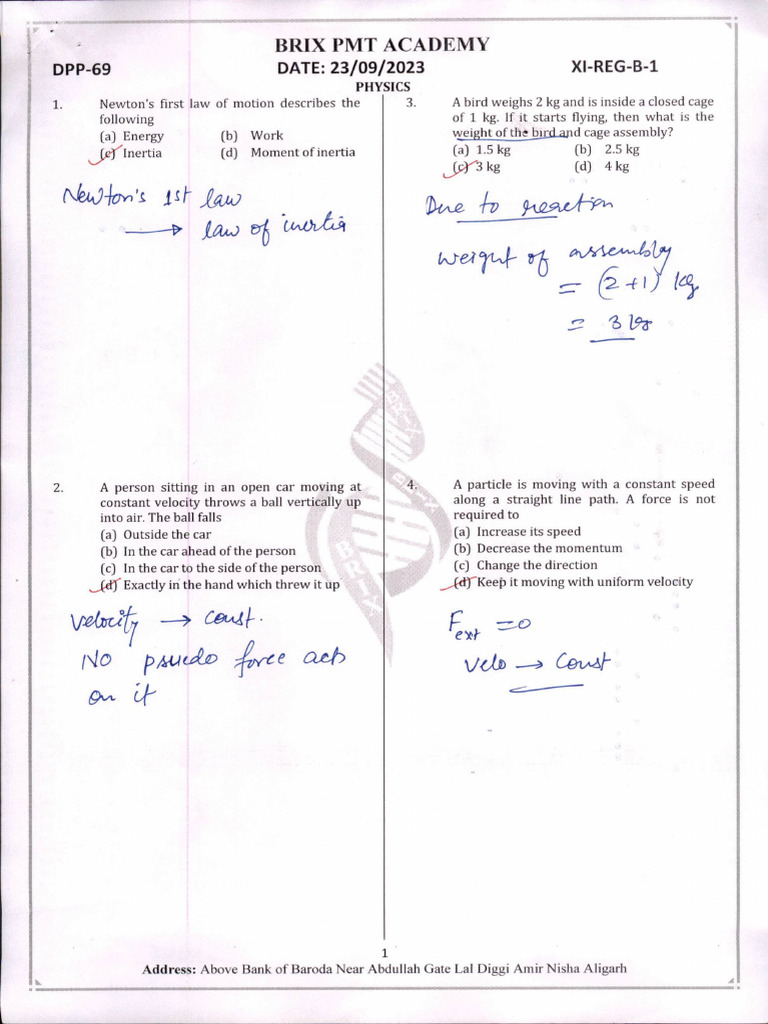 BRIX PMT ACADEMY
DPP-69 DATE: 23/09/2023 XI-REG-B-1
PHYSICS
1. Newton's first law of motion describes the
following
(a) Energy (b) Work
(c) Inertia (d) Moment of inertia
Newton's 1st law
→ law of inertia
2. A person sitting in an open car moving at
constant velocity throws a ball vertically up
into air. The ball falls
(a) Outside the car
(b) In the car ahead of the person
(c) In the car to the side of the person
(d) Exactly in the hand which threw it up
Velocity → const.
NO psuedo force acts
on it
3. A bird weighs 2 kg and is inside a closed cage
of 1 kg. If it starts flying, then what is the
weight of the bird and cage assembly?
(a) 1.5 kg (b) 2.5 kg
(c) 3 kg (d) 4 kg
Due to reaction
weight of assembly
= (2+1) kg
= 3 kg
4. A particle is moving with a constant speed
along a straight line path. A force is not
required to
(a) Increase its speed
(b) Decrease the momentum
(c) Change the direction
(d) Keep it moving with uniform velocity
Fext = 0
velo → const
BRIX
BRIX
BRIX
1
Address: Above Bank of Baroda Near Abdullah Gate Lal Diggi Amir Nisha Aligarh